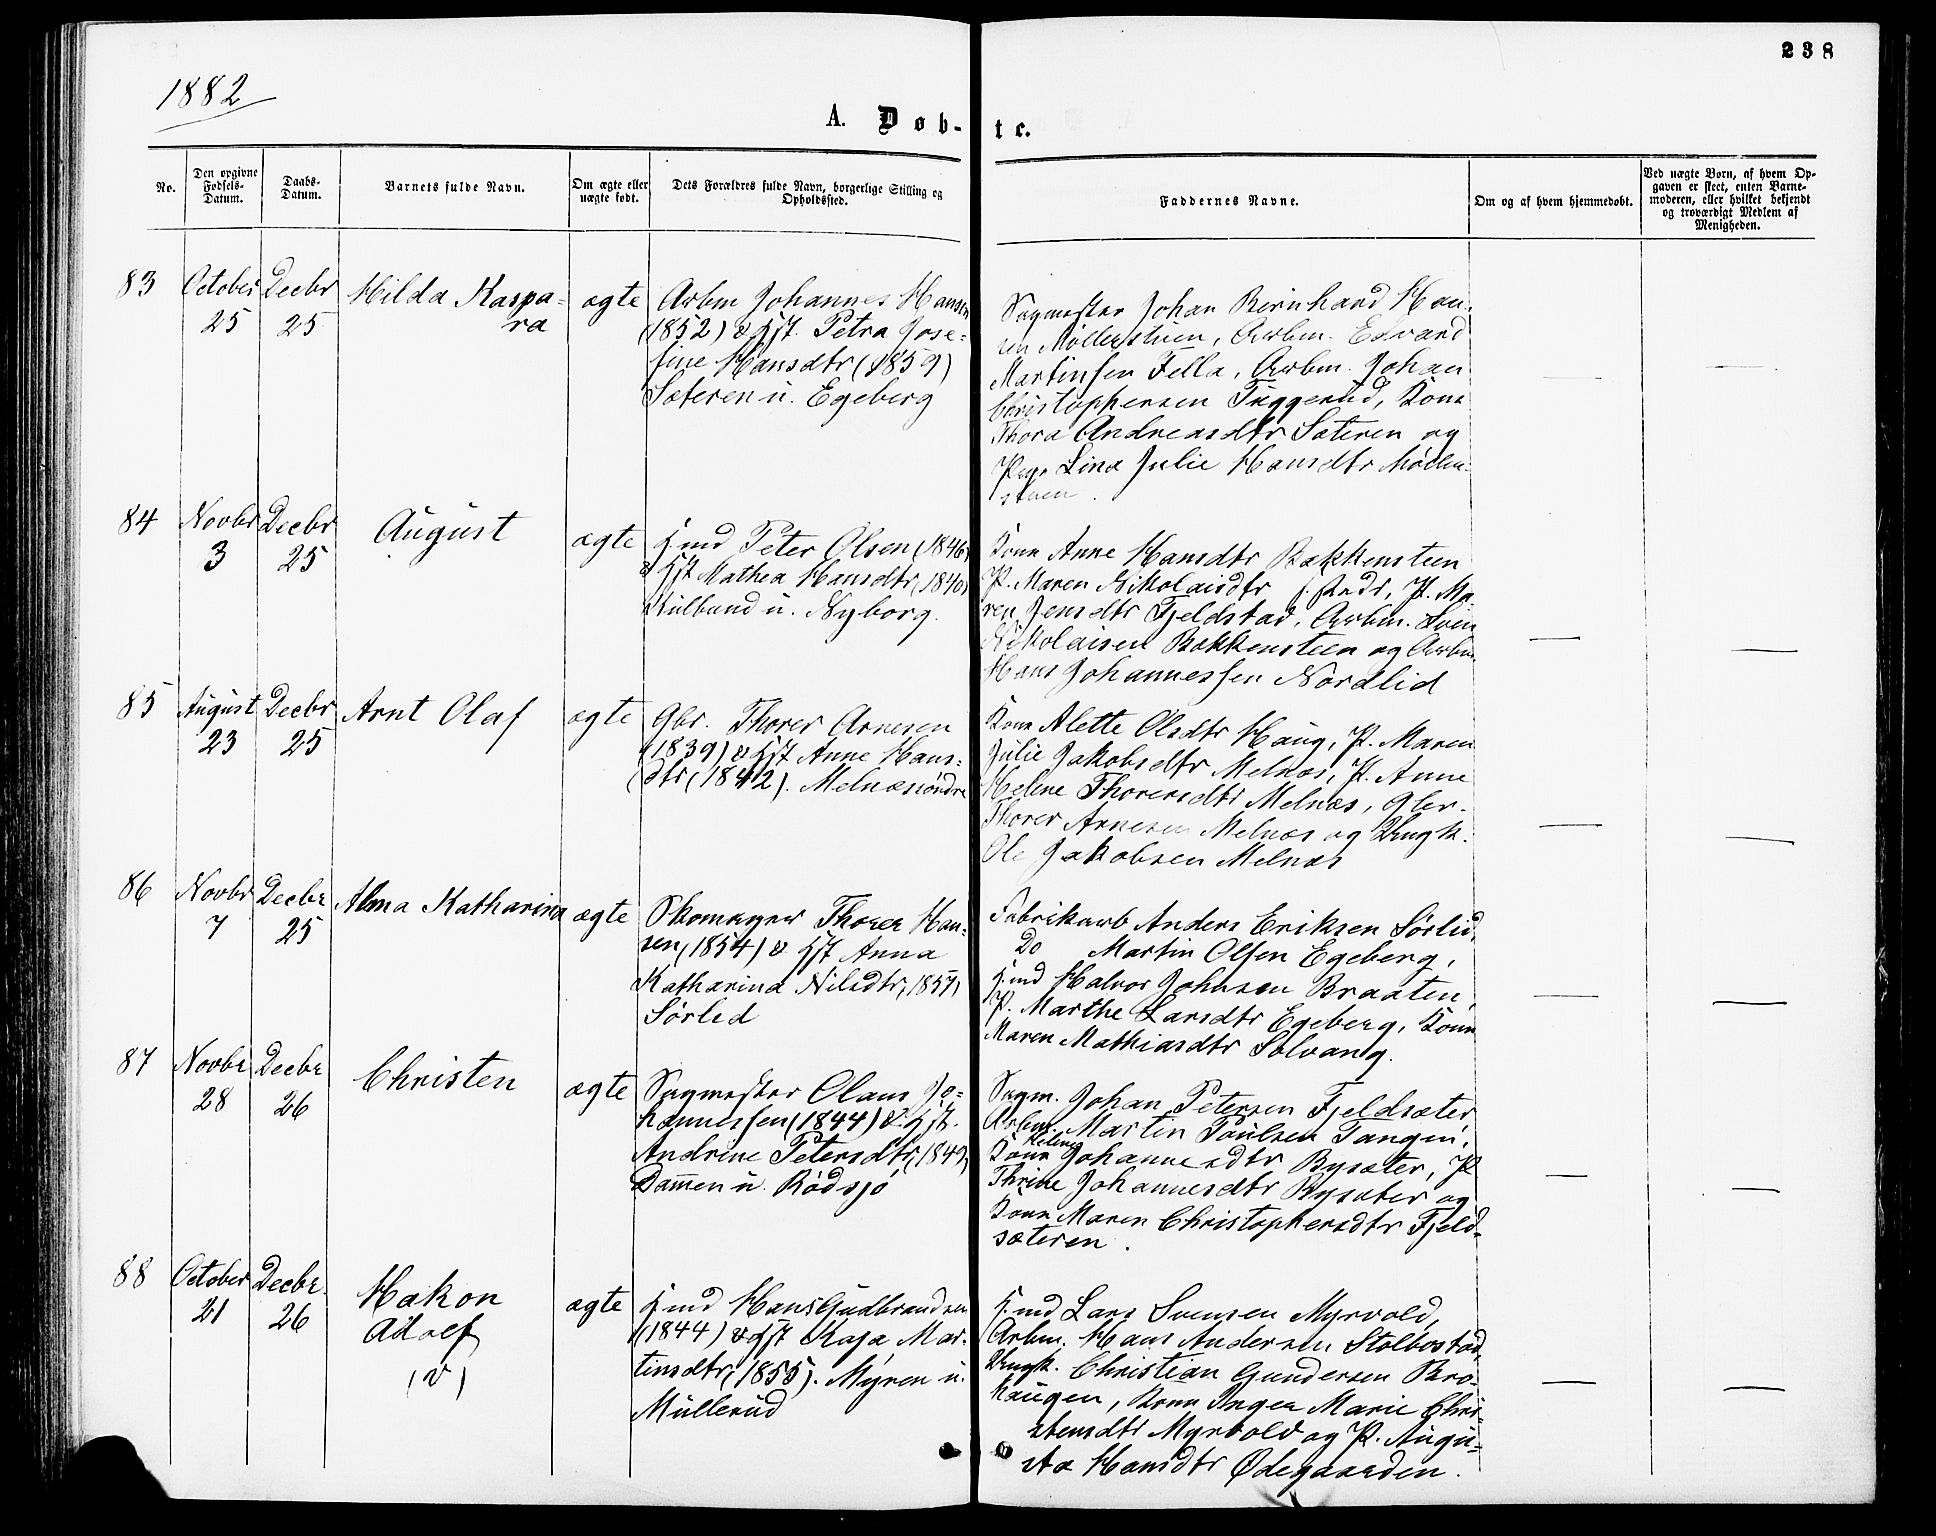 238
1882
A. Døb-
te.
No.
Den opgivne
Fødsels-
Datum.
Daabs-
Datum.
Barnets fulde Navn.
Om ægte eller
uægte født.
Dets Forældres fulde Navn, borgerlige Stilling og
Opholdssted.
Faddernes Navne.
Om og af hvem hjemmedøbt.
Ved uægte Børn, af hvem Op-
gaven er skeet, enten Barne-
moderen, eller hvilket bekjendt
og troværdigt Medlem af
Menigheden.
83
October
25
Decbr
25
Hilda Kaspa-
ra
ægte
Arbm Johannes Hansen
(1852) & Hst. Petra Jose-
fine Hansdtr (1859)
Sæteren u. Egeberg
Sagmester Johan Bernhard Han-
sen Møllerstuen, Arbm. Edvard
Martinsen Fella, Arbm. Johan
Christophersen Tuggerud, Kone
Thora Andreasdtr Sæteren og
Pige Lina Julie Hansdtr Møller-
stuen.
84
Novbr
3
Decbr
25
August
ægte
Hmd Peter Olsen (1846)
& Hst Mathea Hansdtr (1840)
u. Nyborg.
Kone Anne Hansdtr Bakkensteen
P. Maren Nikolaisdtr P. Ma-
ren Jensdtr Fjeldstad, Arbm. Sven
Nikolaisen Bakkensteen og Arbm.
Hans Johannessen Nordlid
85
August
23
Decbr
25
Arnt Olaf
ægte
Gbr. Thorer Arnesen
(1839) & Hst Anne Hans-
dtr (1842). Melnæs søndre
Kone Alette Olsdtr Haug, P. Maren
Julie Jakobsdtr Melnæs, P. Anne
Helene Thorersdtr Melnæs, Gbr.
Thorer Arnesen Melnæs og Ungk.
Ole Jakobsen Melnæs
86
Novbr
7
Decbr
25
Alma Katharina
ægte
Skomager Thorer Han-
sen (1854) & Hst Anna
Katharina Nilsdtr, 1857,
Sørlid
Fabrikarb Anders Eriksen Sørlid,
Do Martin Olsen Egeberg,
Hmd Halvor Johnsen Braaten,
P. Marthe Larsdtr Egeberg, Kone
Maren Mathiasdtr Solvang.
87
Novbr
28
Decbr
26
Christen
ægte
Sagmester Olaus Jo-
hannessen (1844) & Hst.
Andrine Petersdtr, 1849,
Dammen u. Rødsjø
Sagm. Johan Petersen Fjeldsæter
Arbm. Martin Paulsen Tangen,
Helene
Kone Johannesdtr Bysæter, P
Thrine Johannesdtr Bysæter og
Kone Maren Christophersdtr Fjeld-
sæteren.
88
October
21
Decbr.
26
Hakon
Adolf
(v)
ægte
Hmd Hans Gudbrandsen
(1844) & Hst Kaja Mar-
tinsdtr, 1855). Myren u.
Müllerud
Hmd Lars Svensen Myrvold,
Arbm. Hans Andersen Stolbostad,
Ungk. Christian Gundersen Bro-
haugen, Kone Inger Marie Chri-
stensdtr Myrvold og P. Augu-
sta Hansdtr Ødegaarden.